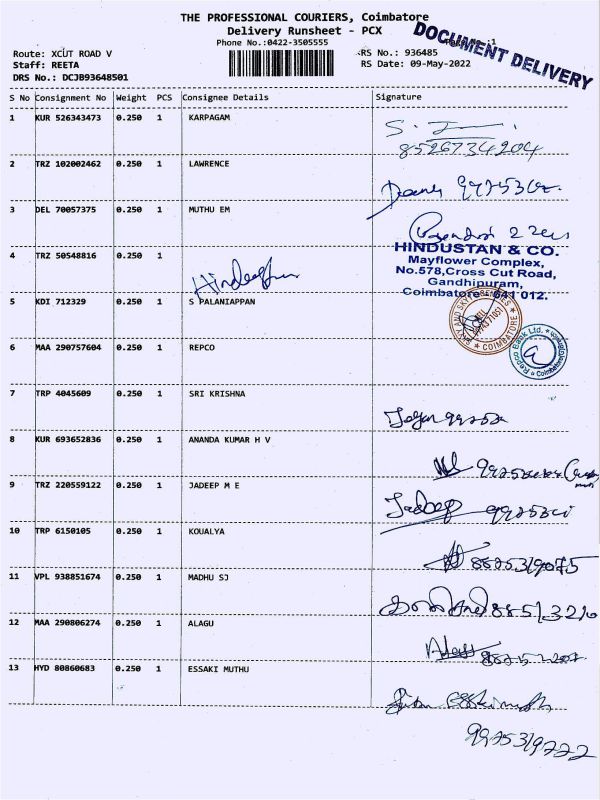 THE PROFESSIONAL COURIERS, Coimbatore
Delivery Runsheet - PCX
Phone No.:0422-3505555
DOCUMENT DELIVERY
Route: XCUT ROAD V
RS No.: 936485
Staff: REETA
RS Date: 09-May-2022
DRS No.: DCJB93648501
S No Consignment No Weight PCS Consignee Details Signature
1 KUR 526343473 0.250 1 KARPAGAM
8526734204
2 TRZ 102002462 0.250 1 LAWRENCE
3 DEL 70057375 0.250 1 MUTHU EM
4 TRZ 50548816 0.250 1
HINDUSTAN & CO.
Mayflower Complex,
No.578,Cross Cut Road,
Gandhipuram,
Coimbatore - 641 012.
5 KDI 712329 0.250 1 S PALANIAPPAN
COIMBATORE
6 MAA 290757604 0.250 1 REPCO
Repco Bank Ltd.
7 TRP 4045609 0.250 1 SRI KRISHNA
8 KUR 693652836 0.250 1 ANANDA KUMAR H V
9 TRZ 220559122 0.250 1 JADEEP M E
Jadeep
10 TRP 6150105 0.250 1 KOUALYA
8825319075
11 VPL 938851674 0.250 1 MADHU SJ
12 MAA 290806274 0.250 1 ALAGU
13 HYD 80860683 0.250 1 ESSAKI MUTHU
9925319222